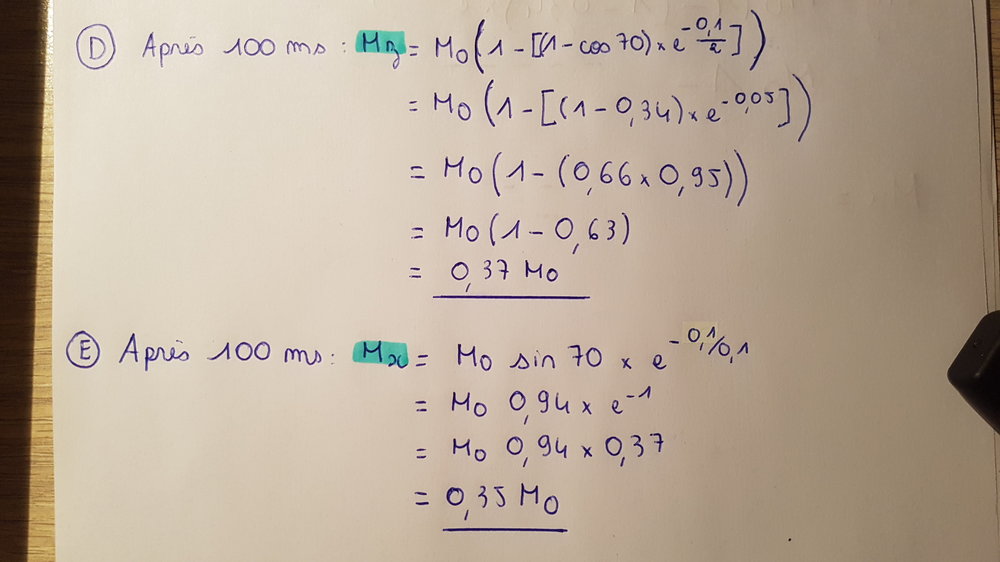 D Après 100 ms : Mz = M0(1-[(1-cos 70) × e^-0,1/2])
= M0(1-[(1-0,34) × e^-0,05])
= M0(1-(0,66 × 0,95))
= M0(1-0,63)
= 0,37 M0
E Après 100 ms : Mx = M0 sin 70 × e^-0,1/0,1
= M0 0,94 × e^-1
= M0 0,94 × 0,37
= 0,35 M0